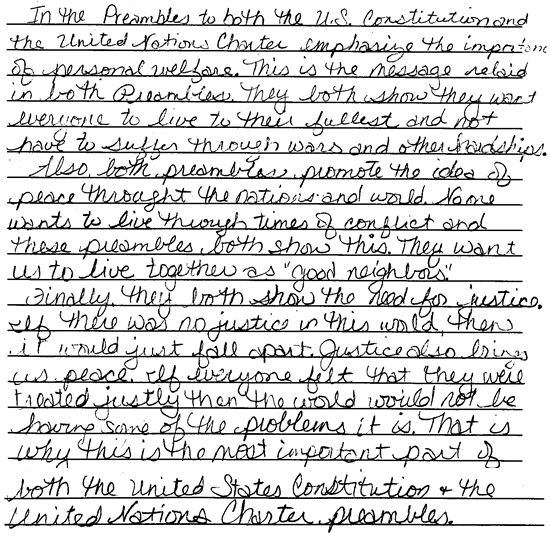 In the Preambles to both the U.S. Constitution and
the United Nations Charter emphasize the importanc
of personal welfare. This is the message relaid
in both Preambles. They both show they want
everyone to live to their fullest and not
have to suffer through wars and other hardships.
Also, both, preambles, promote the idea of
peace throught the nations and world. No one
wants to live through times of conflict and
these preambles both show this. They want
us to live together as "good neighbors."
Finally, they both show the need for justice.
If there was no justice in this world, then
it would just fall apart. Justice also brings
us peace. If everyone felt that they were
treated justly then the world would not be
having some of the problems it is. That is
why this is the most important part of
both the United States Constitution & the
United Nations Charter preambles.